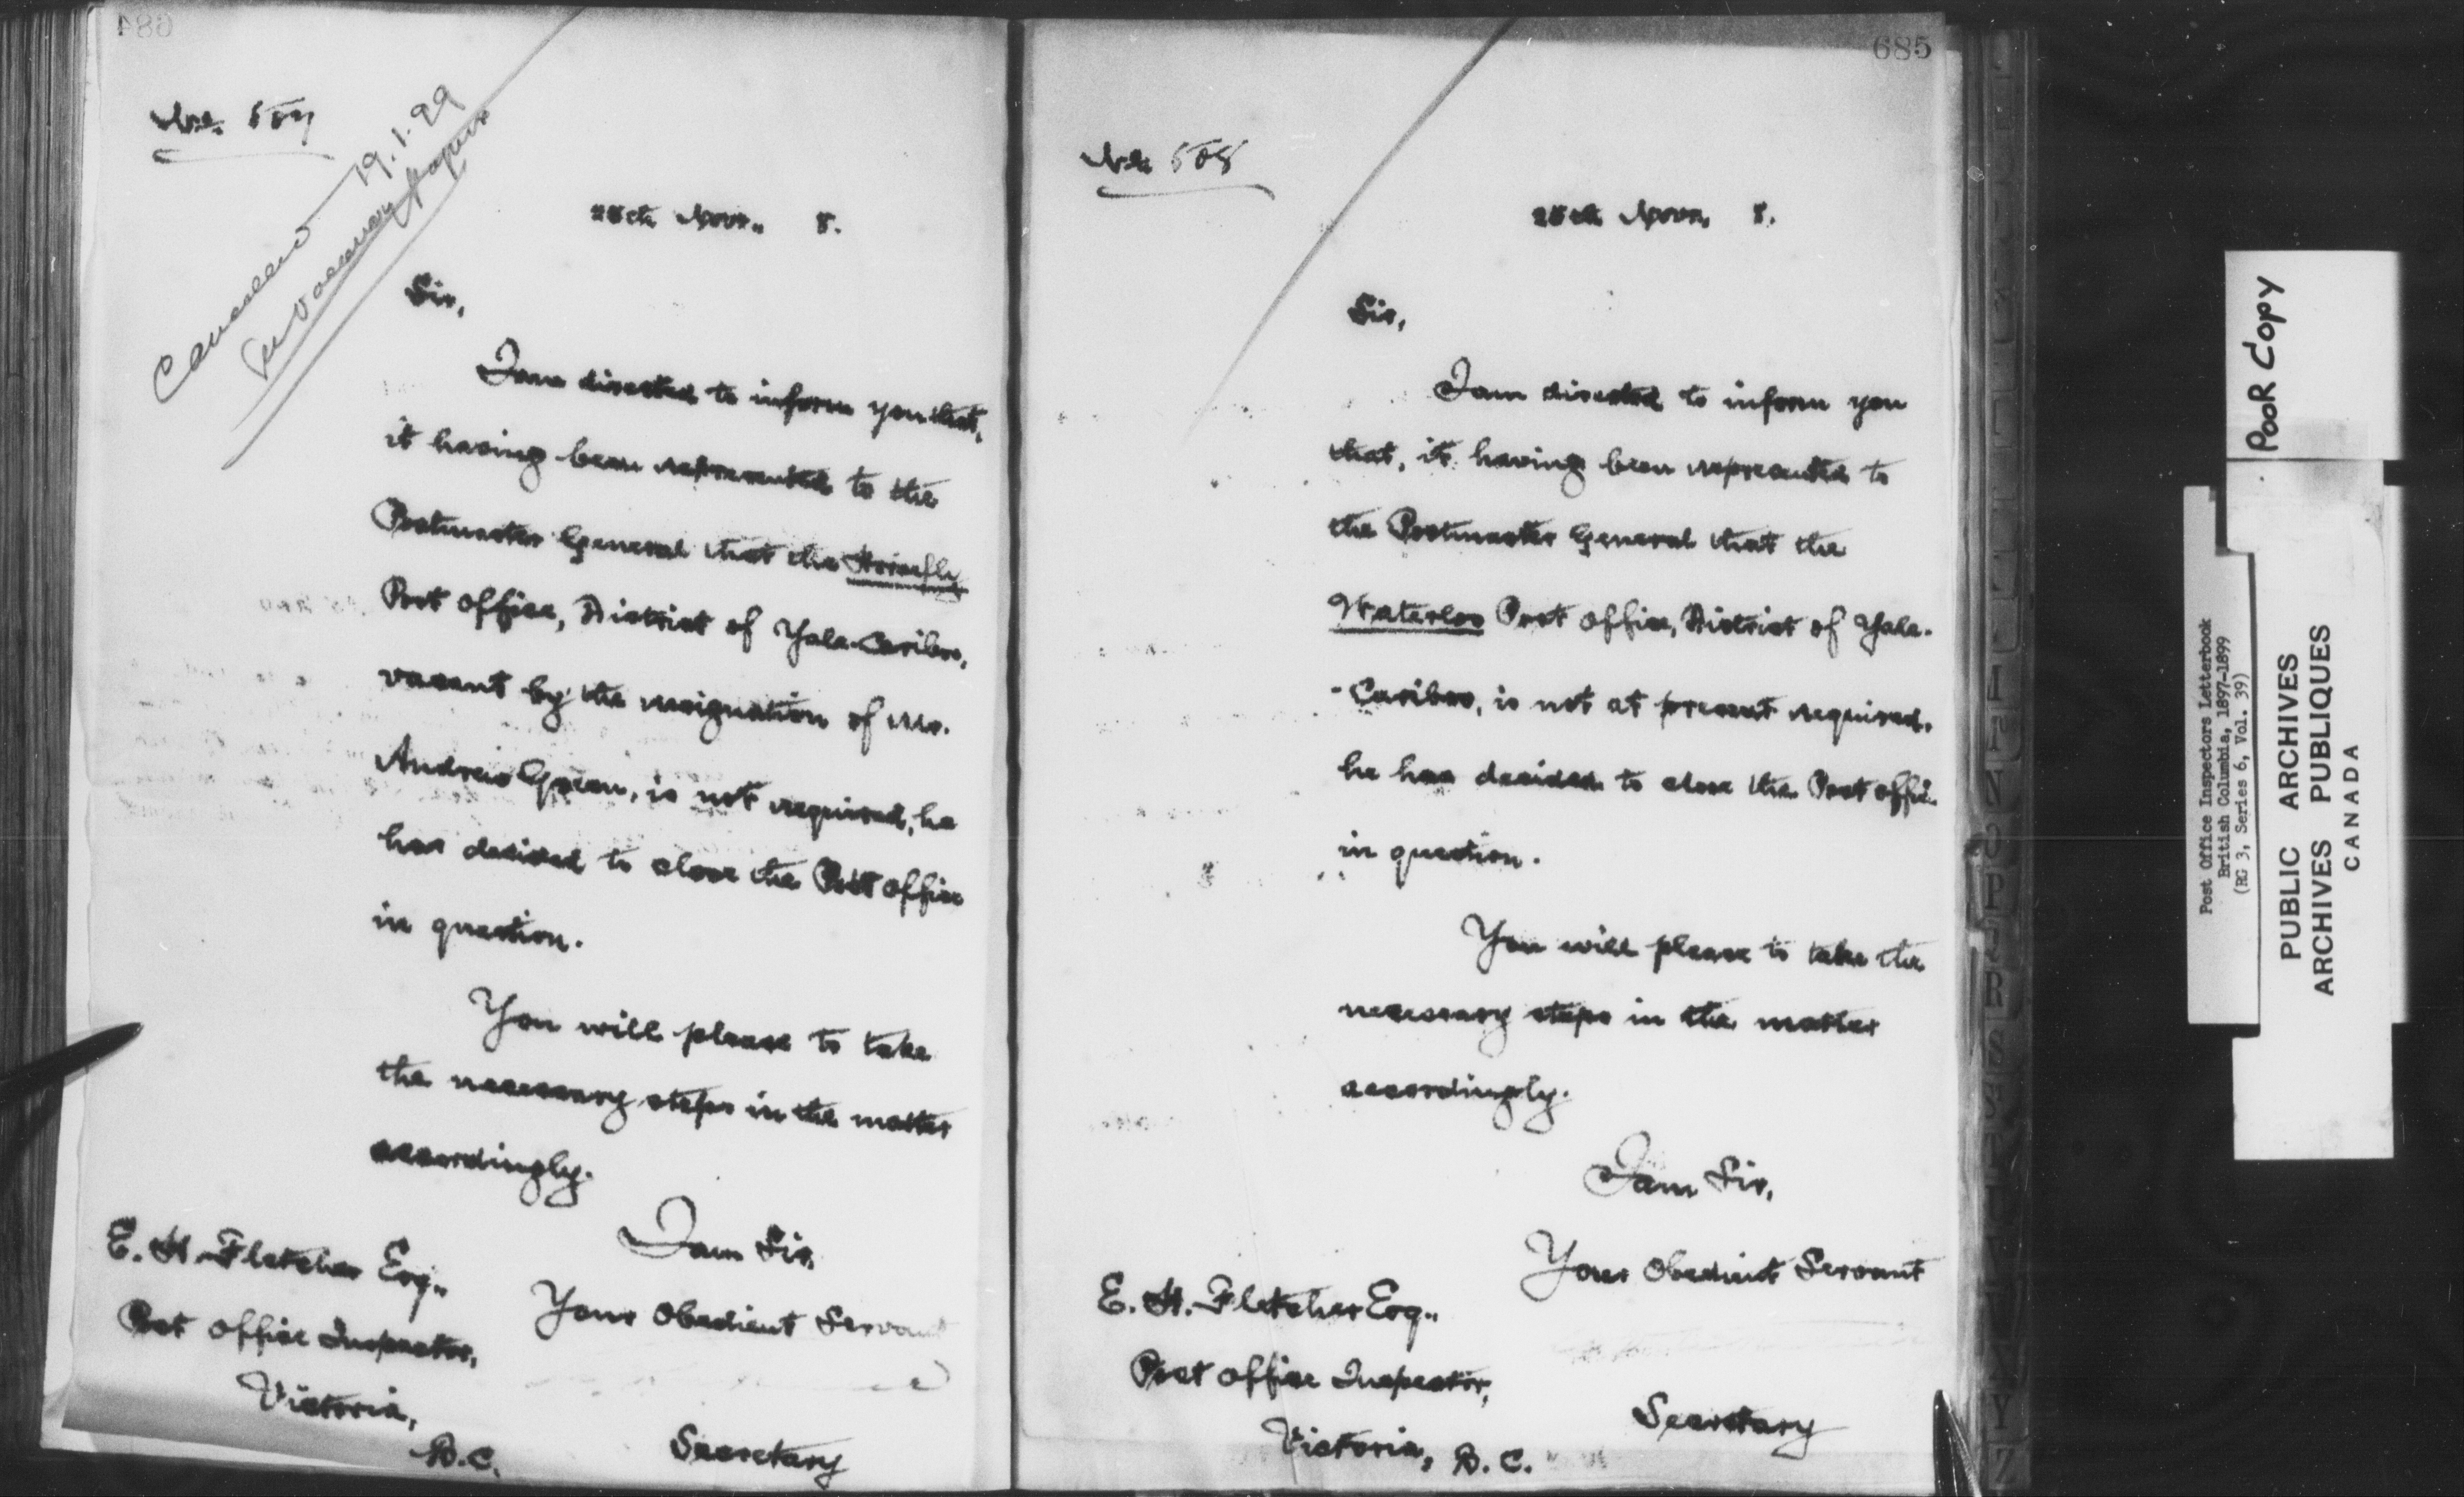 684
No. 507
Cancelled 19.1.99
See Vacancy papers
28th Novr. 8.
Sir,
I am directed to inform you that,
it having been represented to the
Postmaster General that the Horsefly
Post Office, District of Yale-Cariboo,
vacant by the resignation of Mr.
Andrew Green, is not required, he
has decided to close the Post Office
in question.
You will please to take
the necessary steps in the matter
accordingly.
I am Sir,
Your Obedient Servant
Secretary
E. H. Fletcher Esq.,
Post Office Inspector,
Victoria,
B.C.
685
No. 508
28th Novr. 8.
Sir,
I am directed to inform you
that, it having been represented to
the Postmaster General that the
Waterloo Post Office, District of Yale-
-Cariboo, is not at present required,
he has decided to close the Post Office
in question.
You will please to take the
necessary steps in the matter
accordingly.
I am Sir,
Your Obedient Servant
Secretary
E. H. Fletcher Esq.,
Post Office Inspector,
Victoria, B.C.
POOR COPY
Post Office Inspectors Letterbook
British Columbia, 1897-1899
(RG 3, Series 6, Vol. 39)
PUBLIC ARCHIVES
ARCHIVES PUBLIQUES
CANADA